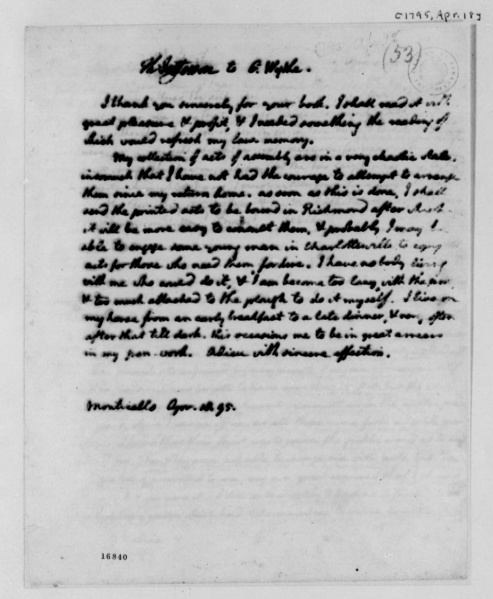 [1795, Apr. 18]
(53)
Th: Jefferson to G. Wythe.
I thank you sincerely for your book. I shall read it with
great pleasure & profit, & I needed something the reading of
which would refresh my law memory.
My collection of acts of assembly are in a very chaotic state,
insomuch that I have not had the courage to attempt to arrange
them since my return home. as soon as this is done, I shall
send the printed acts to be bound in Richmond after which
it will be more easy to consult them, & probably I may be
able to engage some young man in Charlottesville to copy
acts for those who need them for hire. I have no body living
with me who could do it, & I am become too lazy, with the pen,
& too much attached to the plough to do it myself. I live on
my horse from an early breakfast to a late dinner, & very often
after that till dark. this occasions me to be in great arrears
in my pen-work. Adieu with sincere affection.
Monticello Apr. 18. 95.
16840